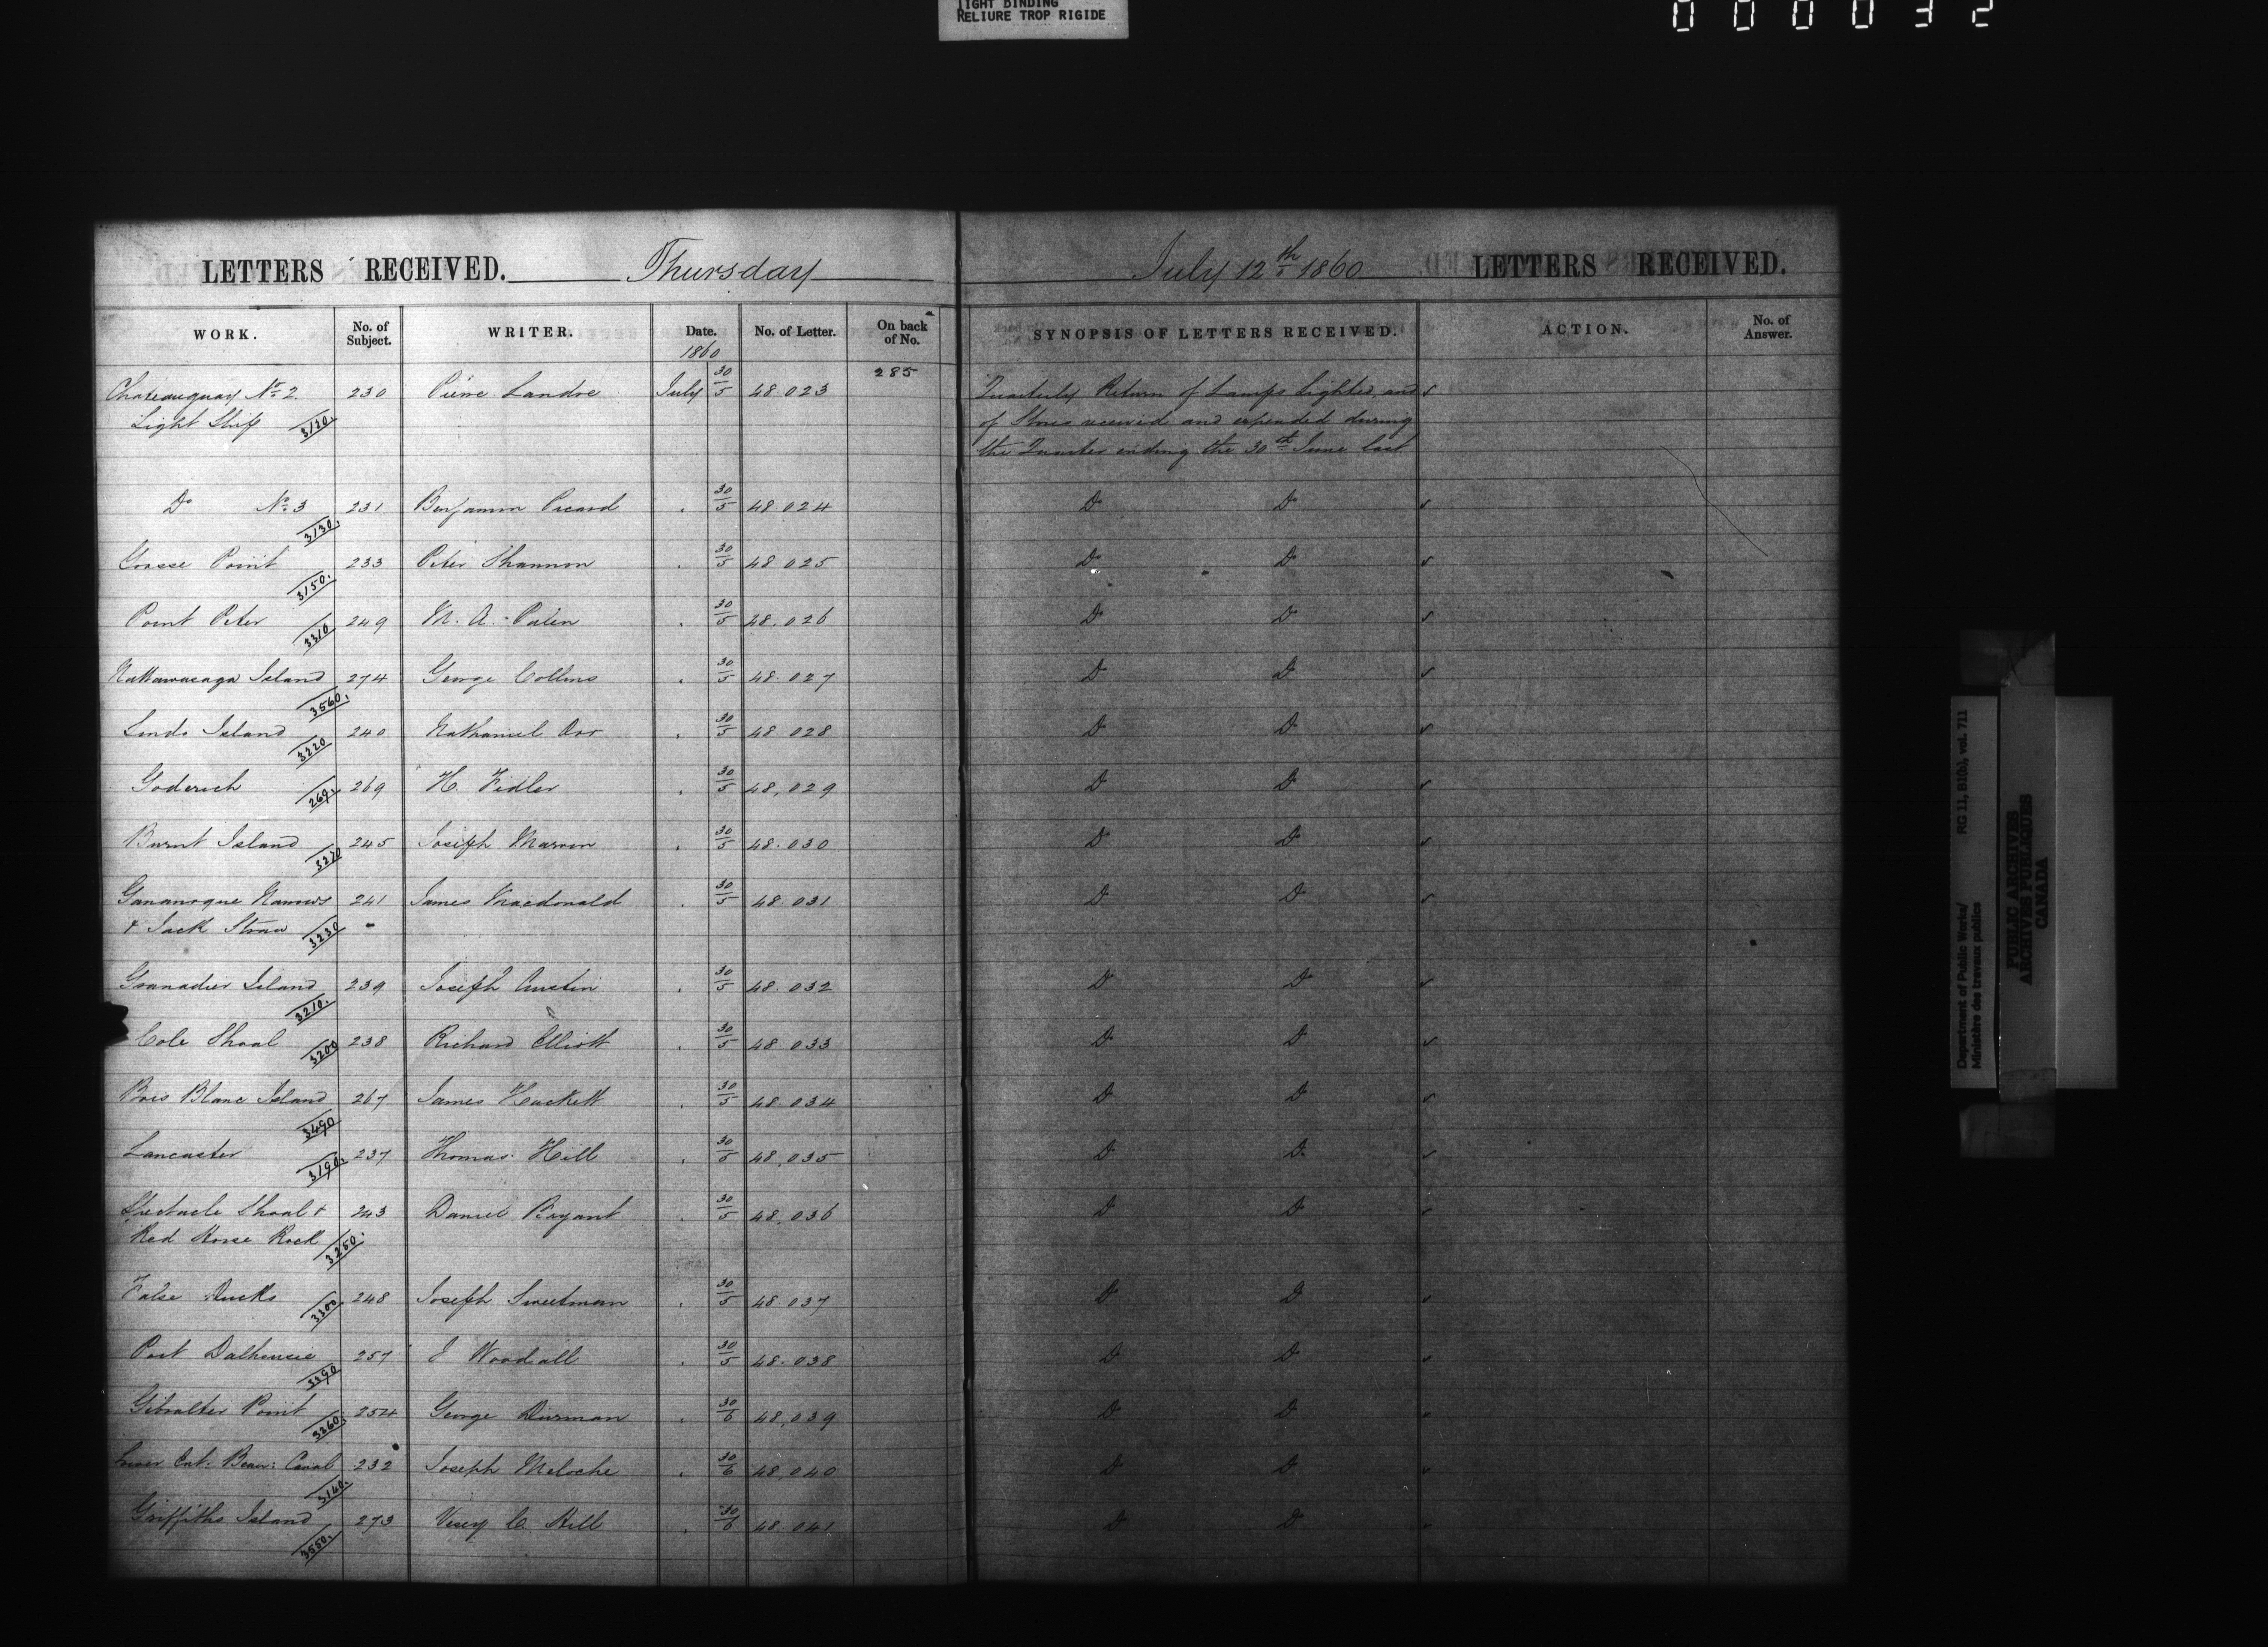 TIGHT BINDING
RELIURE TROP RIGIDE
000032
LETTERS RECEIVED. Thursday July 12th 1860 LETTERS RECEIVED.
WORK. No. of Subject. WRITER. Date. No. of Letter. On back of No. SYNOPSIS OF LETTERS RECEIVED. ACTION. No. of Answer.
1860
285
Chateauguay No. 2 230 Pierre Landre July 30/5 48.023 Quarterly Return of Lamps lighted and
Light Ship 3120. of Stores received and expended during
the Quarter ending the 30th June last
Do No. 3 231 Benjamin Picard 30/5 48.024 Do Do
3130.
Grosse Point 233 Peter Shannon 30/5 48.025 Do Do
3150.
Point Peter 249 M. A. Palen 30/5 48.026 Do Do
3310
Nattawasaga Island 274 George Collins 30/5 48.027 Do Do
3560.
Linds Island 240 Nathaniel Orr 30/5 48.028 Do Do
3220
Goderich 269. 269 H. Fidler 30/5 48,029 Do Do
Burnt Island 245 Joseph Marron 30/5 48.030 Do Do
3270
Gananoque Narrows 241 James Macdonald 30/5 48.031 Do Do
& Jack Straw 3230
Granadier Island 239 Joseph Austin 30/5 48.032 Do Do
3210.
Cole Shoal 3200 238 Richard Elliott 30/5 48.033 Do Do
Bois Blanc Island 267 James Hackett 30/5 48.034 Do Do
3490
Lancaster 237 Thomas Hill 30/6 48,035 Do Do
3190.
Spectacle Shoal & 243 Daniel Bryant 30/5 48,036 Do Do
Red Horse Rock 3250.
False Ducks 3300. 248 Joseph Sweetman 30/5 48.037 Do Do
Port Dalhousie 257 J Woodall 30/5 48.038 Do Do
3390
Gibralter Point 254 George Durnan 30/6 48,039 Do Do
3360.
Lower Ent. Beau: Canal 232 Joseph Meloche 30/6 48,040 Do Do
3140.
Griffiths Island 273 Vesey C. Hill 30/6 48.041 Do Do
3550.
Department of Public Works/
Ministère des travaux publics
RG 11, B1(b), vol. 711
PUBLIC ARCHIVES
ARCHIVES PUBLIQUES
CANADA